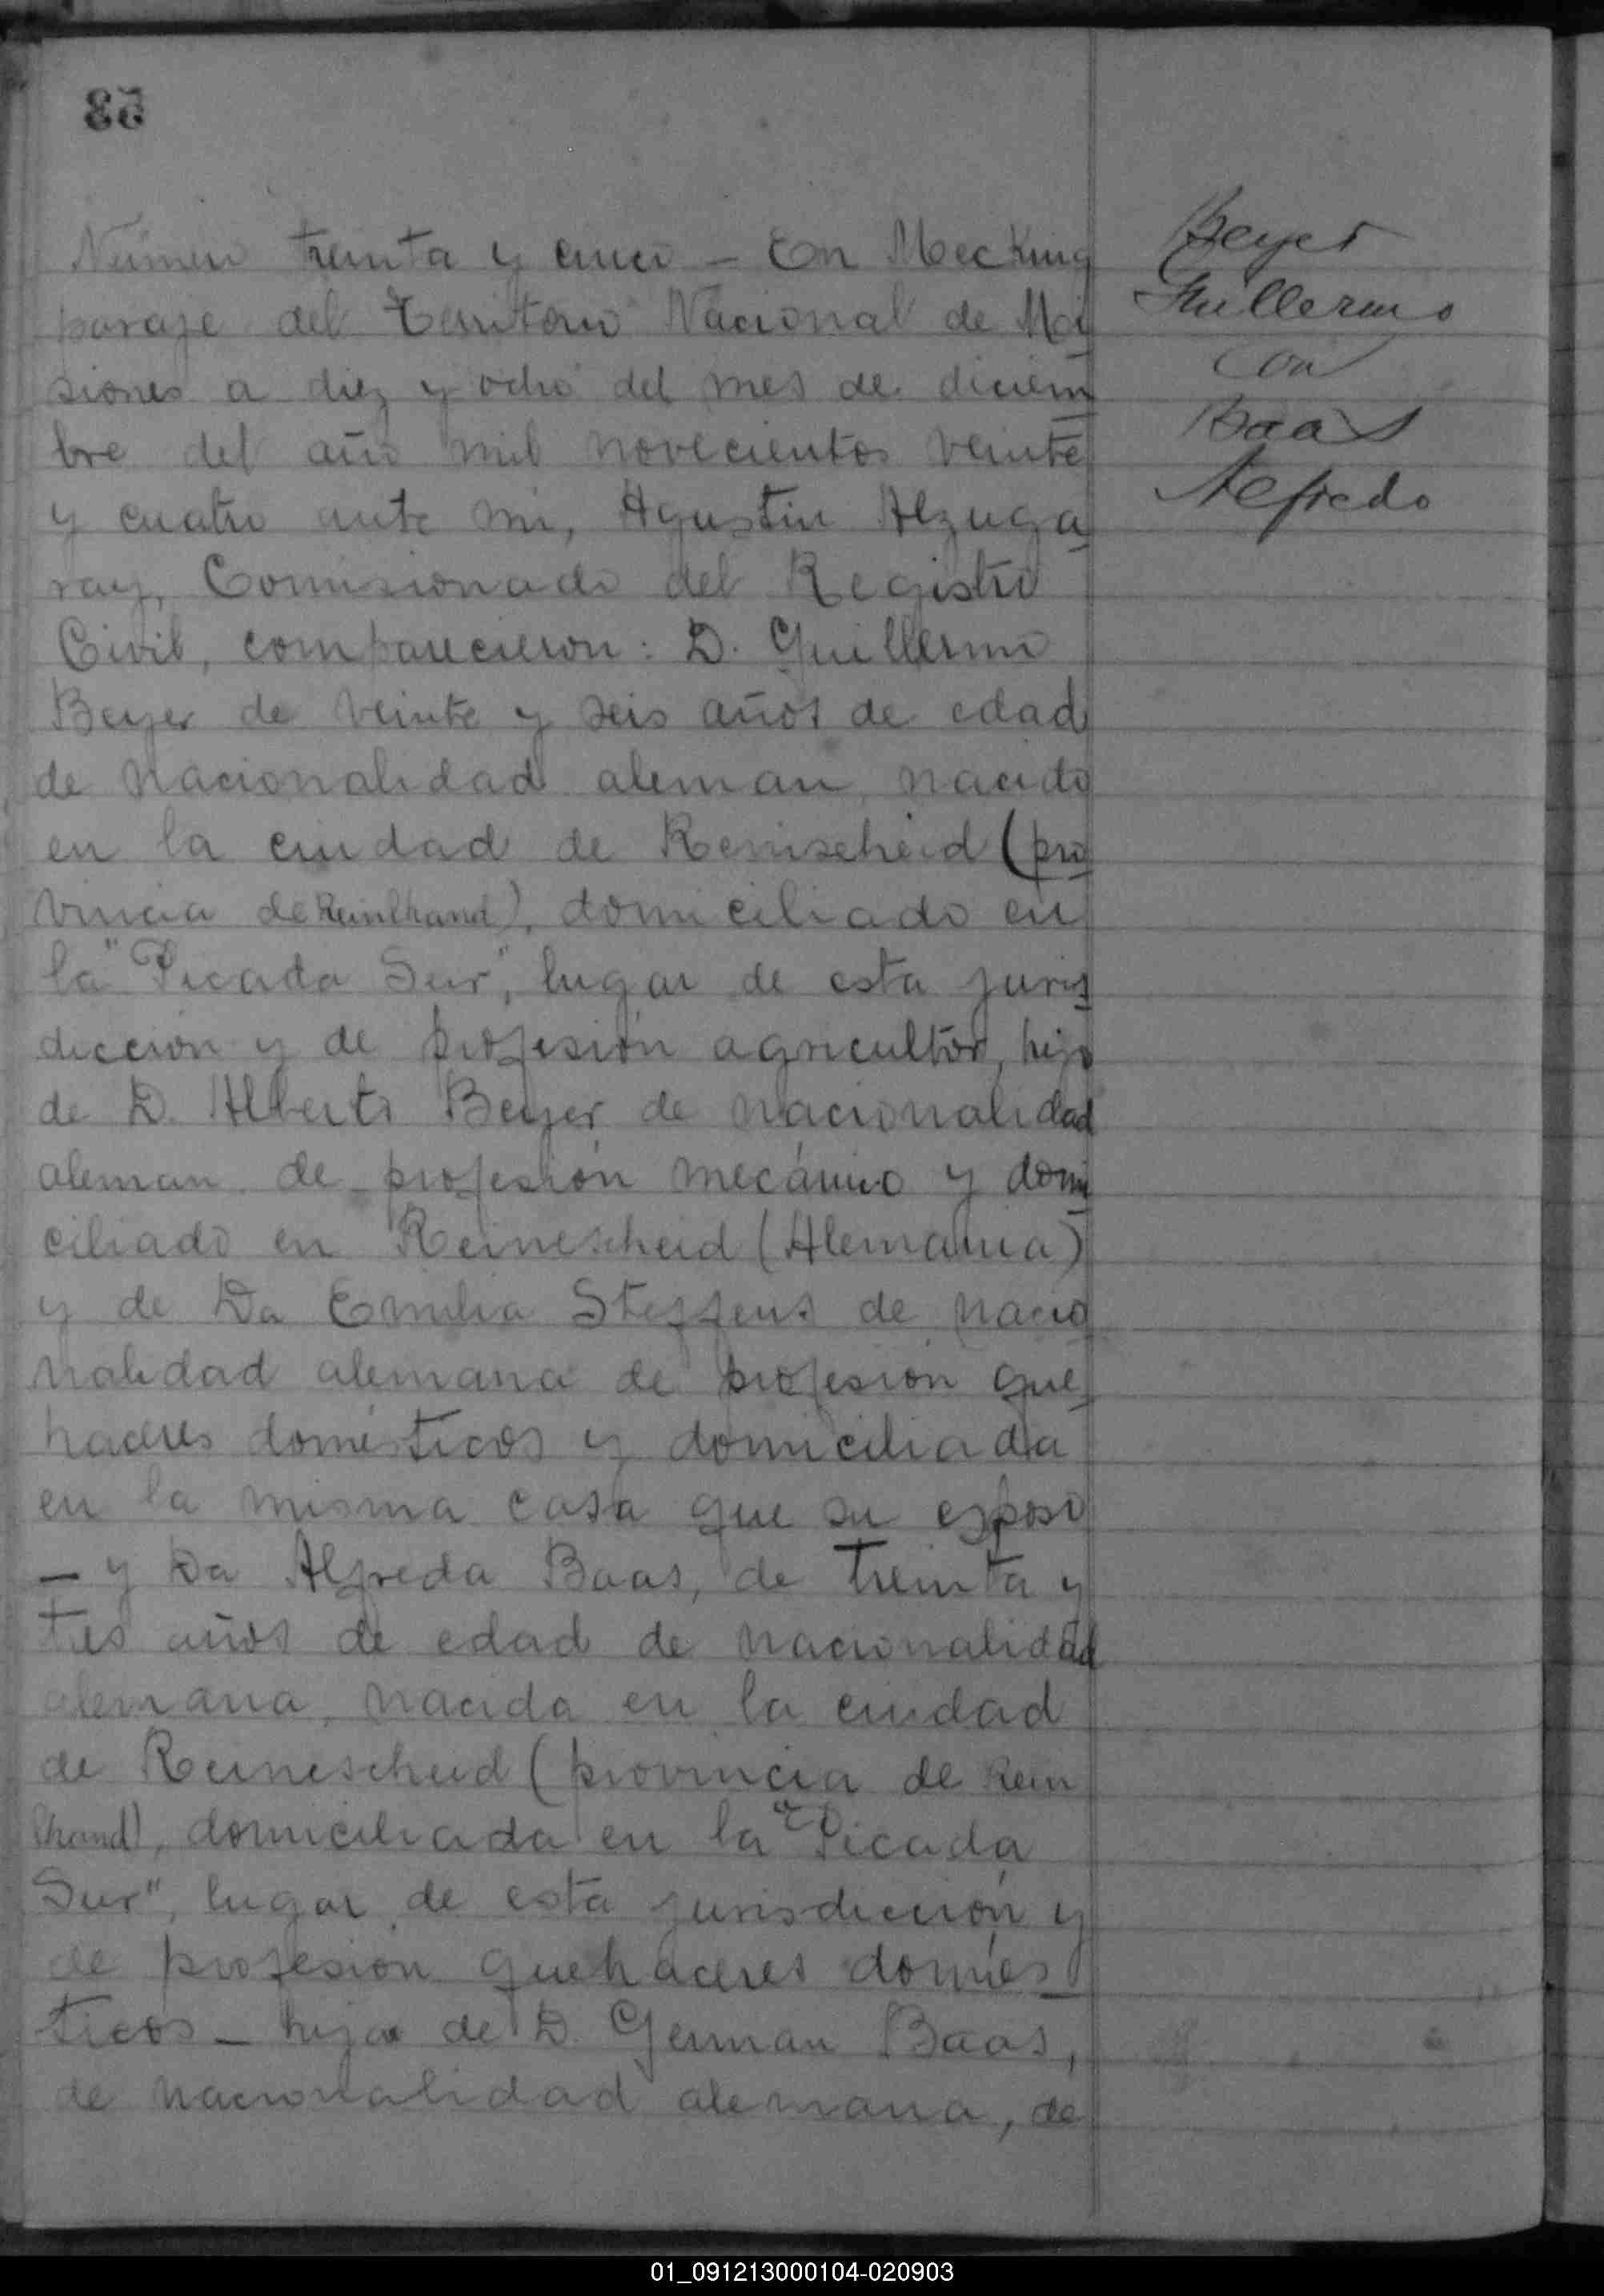 35
Número treinta y cinco – En Mecking
paraje del Territorio Nacional de Mi
siones a diez y ocho del mes de diciem
bre del año mil novecientos veinte
y cuatro ante mi, Agustin Alzuga
ray, Comisionado del Registro
Civil, comparecieron: D. Guillermo
Beyer de veinte y seis años de edad
de nacionalidad aleman, nacido
en la ciudad de Remscheid (pro
vincia de Reinlhand), domiciliado en
la "Picada Sur", lugar de esta juris
dicción y de profesión agricultor, hijo
de D. Alberto Beyer de nacionalidad
aleman de profesión mecánico y domi
ciliado en Reinescheid (Alemania)
y de Da Emilia Steffens de nacio
nalidad alemana de profesión que
haceres domésticos y domiciliada
en la misma casa que su esposo
– y Da Alfreda Baas, de treinta y
tres años de edad de nacionalidad
alemana, nacida en la ciudad
de Reinescheid (provincia de Rein
lhand), domiciliada en la "Picada
Sur", lugar de esta jurisdicción y
de profesión quehaceres domés
ticos – hija de D. German Baas,
de nacionalidad alemana, de
Beyer
Guillermo
con
Baas
Alfredo
01_091213000104-020903